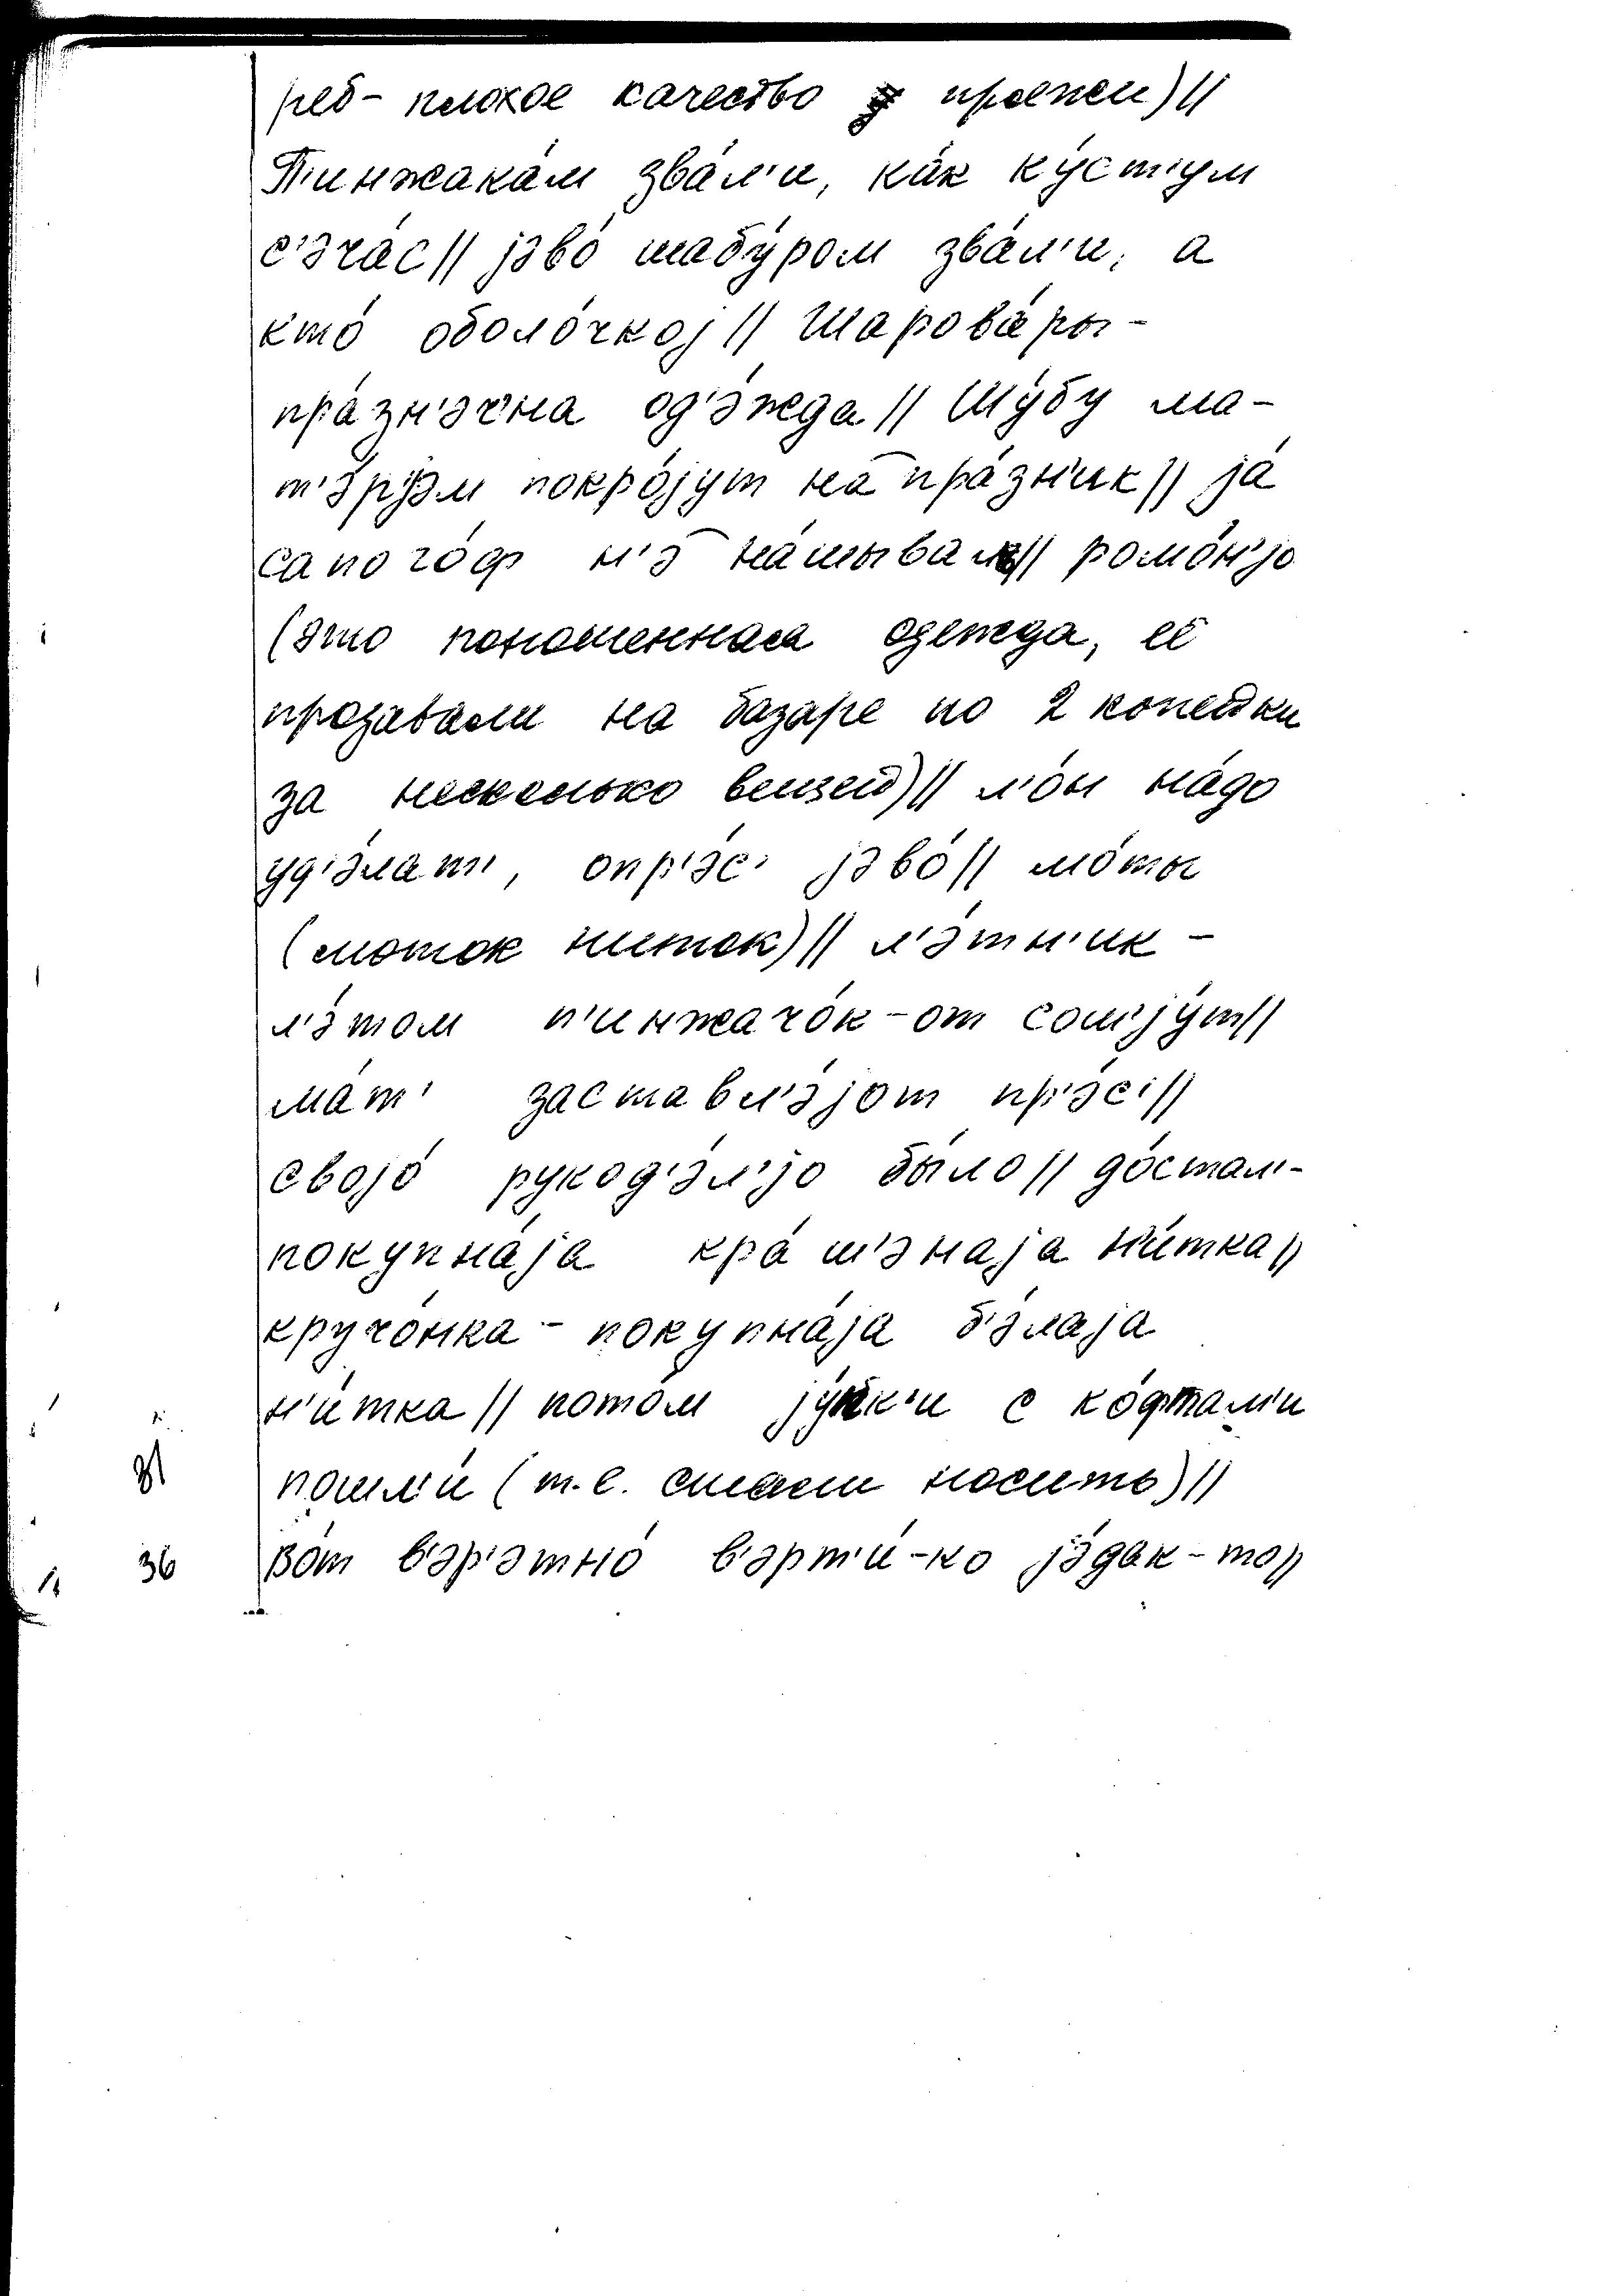 реб- плохое качество пряжи)//
П'инжака́м зва́л'и, ка́к ку́ст'ум
с'эча́с// jэво́ шабу́ром зва́л'и, а
кто́ оболо́чкоj// Шарова́ры-
пра́зн'эчна од'э́жда// Шу́бу ма-
т'э́рjэм покро́jут на пра́зн'ик// jа́
сапого́ф н'э на́шывал// ромо́н'jо
(это поношенная одежда, её
продавали на базаре по 2 копейки
за несколько вещей)// л'о́н на́до
уд'э́лат', опр'э́с' jэво́// мо́ты
(моток ниток)// л'э́тн'ик -
л'э́том п'инжачо́к-от сош'jу́т//
ма́т' заставл'э́jот пр'э́с'//
своjо́ рукод'э́л'jо бы́ло// до́стал'-
покупна́jа кра́ш'энаjа н'и́тка//
кручо́нка - покупна́jа б'э́лаjа
н'и́тка// пото́м jу́пк'и с ко́фтам'и
пошл'и́ (т.е. стали носить)//
31
36 во́т в'эр'этно́ в'эрт'и́-ко jэ́дак-то//